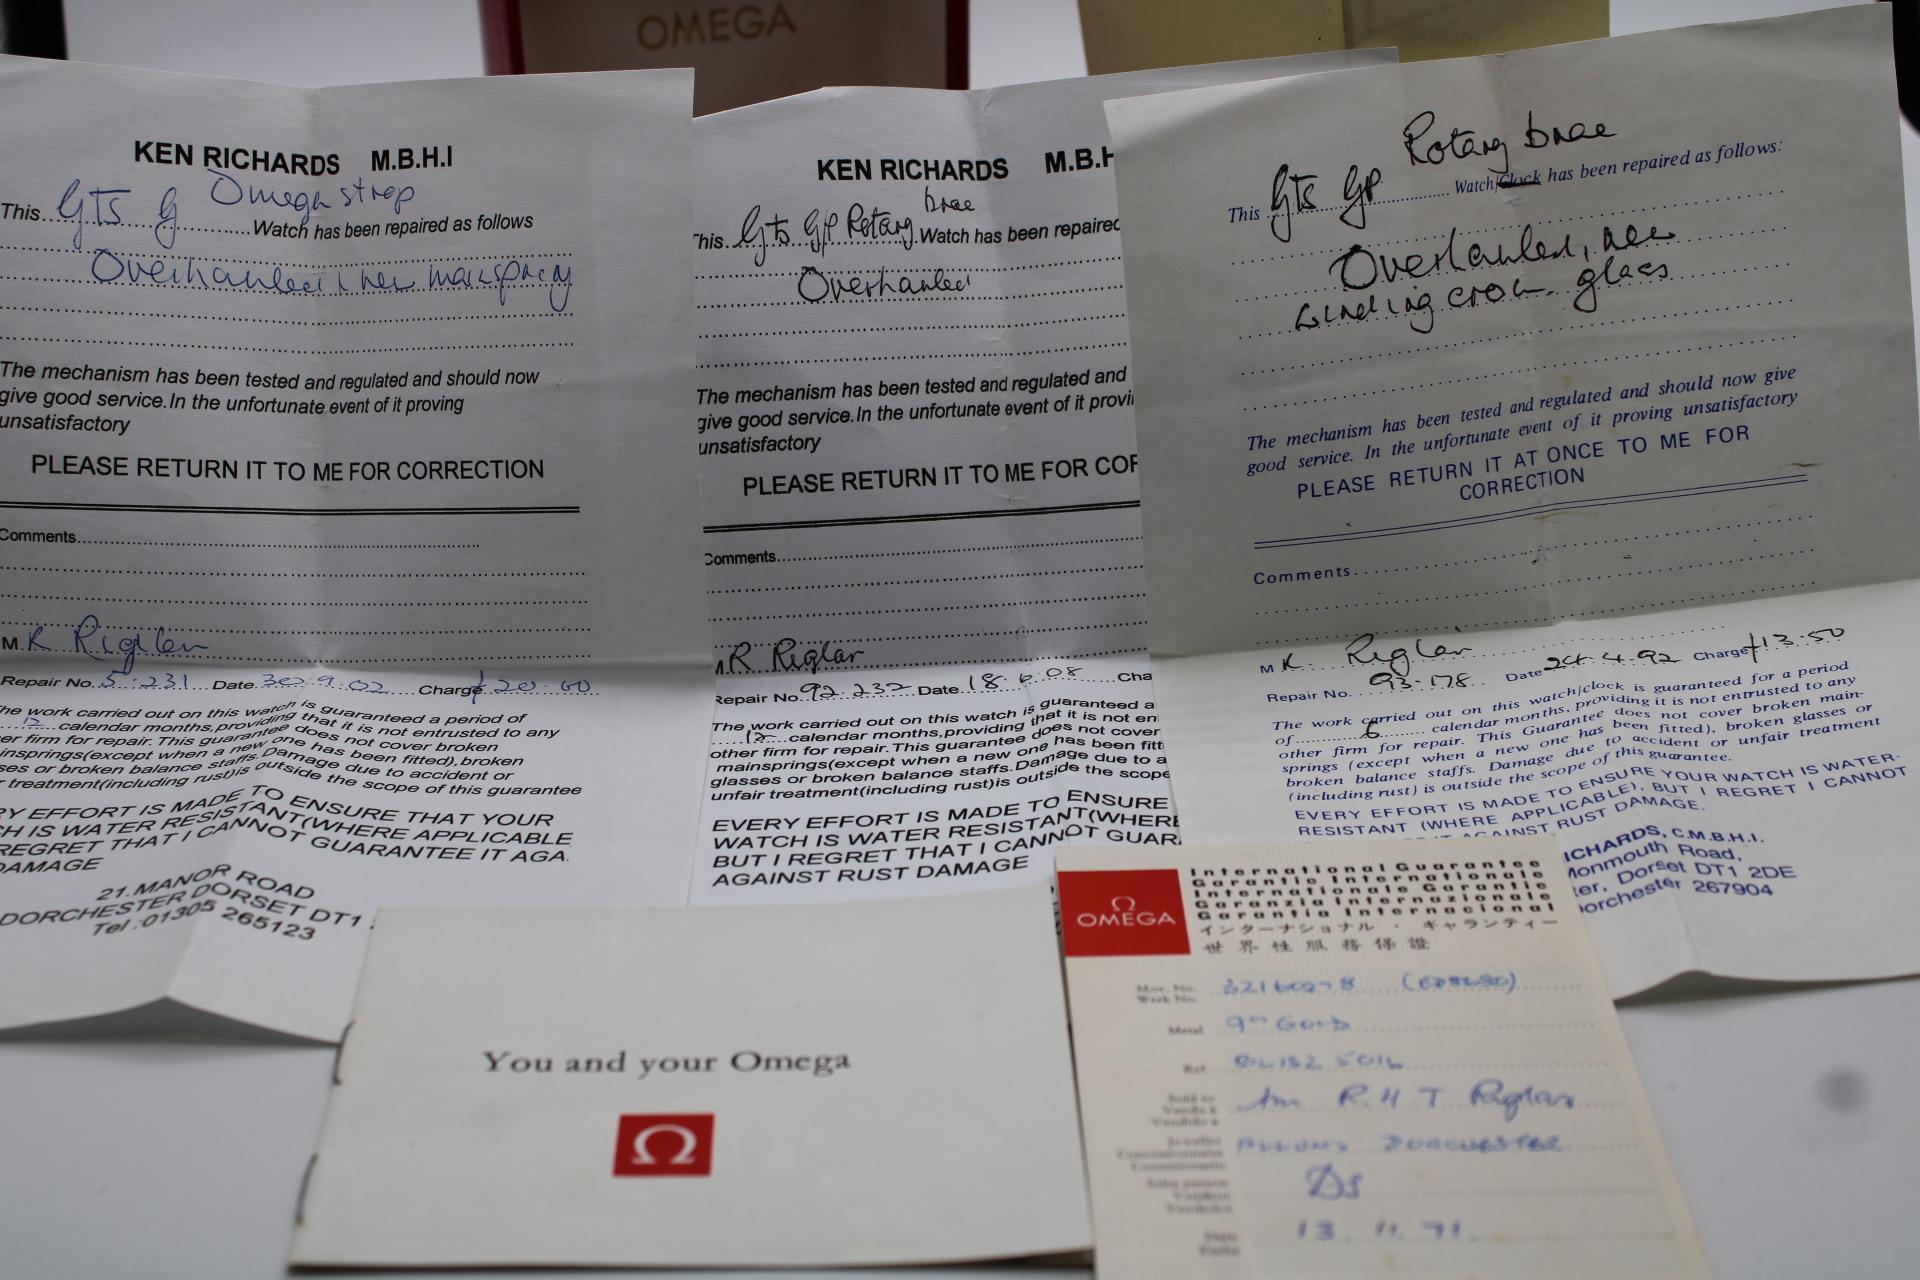 OMEGA
KEN RICHARDS M.B.H.I
This Gts G Omega strap Watch has been repaired as follows
Overhauled & new mainspring
The mechanism has been tested and regulated and should now
give good service.In the unfortunate event of it proving
unsatisfactory
PLEASE RETURN IT TO ME FOR CORRECTION
Comments
M R Riglar
Repair No. 5.231 Date 30.9.02 Charge £20.00
The work carried out on this watch is guaranteed a period of
12 calendar months,providing that it is not entrusted to any
er firm for repair.This guarantee does not cover broken
insprings(except when a new one has been fitted),broken
ses or broken balance staffs.Damage due to accident or
r treatment(including rust)is outside the scope of this guarantee
RY EFFORT IS MADE TO ENSURE THAT YOUR
CH IS WATER RESISTANT(WHERE APPLICABLE
REGRET THAT I CANNOT GUARANTEE IT AGA
DAMAGE
21.MANOR ROAD
DORCHESTER DORSET DT1
Tel :01305 265123
KEN RICHARDS M.B.H
This Gts GP Rotary brac Watch has been repaired
Overhauled
The mechanism has been tested and regulated and
give good service.In the unfortunate event of it provi
unsatisfactory
PLEASE RETURN IT TO ME FOR COR
Comments
R Riglar
Repair No 92.232 Date 18.6.08 Cha
The work carried out on this watch is guaranteed a
12 calendar months,providing that it is not en
other firm for repair.This guarantee does not cover
mainsprings(except when a new one has been fitt
glasses or broken balance staffs.Damage due to a
unfair treatment(including rust)is outside the scope
EVERY EFFORT IS MADE TO ENSURE
WATCH IS WATER RESISTANT(WHERE
BUT I REGRET THAT I CANNOT GUAR
AGAINST RUST DAMAGE
This Gts GP Rotary brac Watch/Clock has been repaired as follows:
Overhauled, new
winding crown glass
The mechanism has been tested and regulated and should now give
good service. In the unfortunate event of it proving unsatisfactory
PLEASE RETURN IT AT ONCE TO ME FOR
CORRECTION
Comments
M R. Riglar
Repair No. 93.178 Date 24.4.92 Charge £13.50
The work carried out on this watch/clock is guaranteed for a period
of 6 calendar months, providing it is not entrusted to any
other firm for repair. This Guarantee does not cover broken main-
springs (except when a new one has been fitted), broken glasses or
broken balance staffs. Damage due to accident or unfair treatment
(including rust) is outside the scope of this guarantee.
EVERY EFFORT IS MADE TO ENSURE YOUR WATCH IS WATER-
RESISTANT (WHERE APPLICABLE), BUT I REGRET I CANNOT
AGAINST RUST DAMAGE.
ICHARDS, C.M.B.H.I.
Monmouth Road,
ter, Dorset DT1 2DE
orchester 267904
You and your Omega
Ω
Ω
OMEGA
International Guarantee
Garantie Internationale
Internationale Garantie
Garanzia Internazionale
Garantia Internacional
インターナショナル・ギャランティー
世界性服務保證
Mov. No.
Werk No.
Metal 9ct Gold
Ref.
Sold to R H T Riglar
Vendu à
Vendido a
Jeweller DORCHESTER
Concessionnaire
Concesionario
Sales person Ds
Vendeur
Vendedor
Date 13.11.71
Fecha